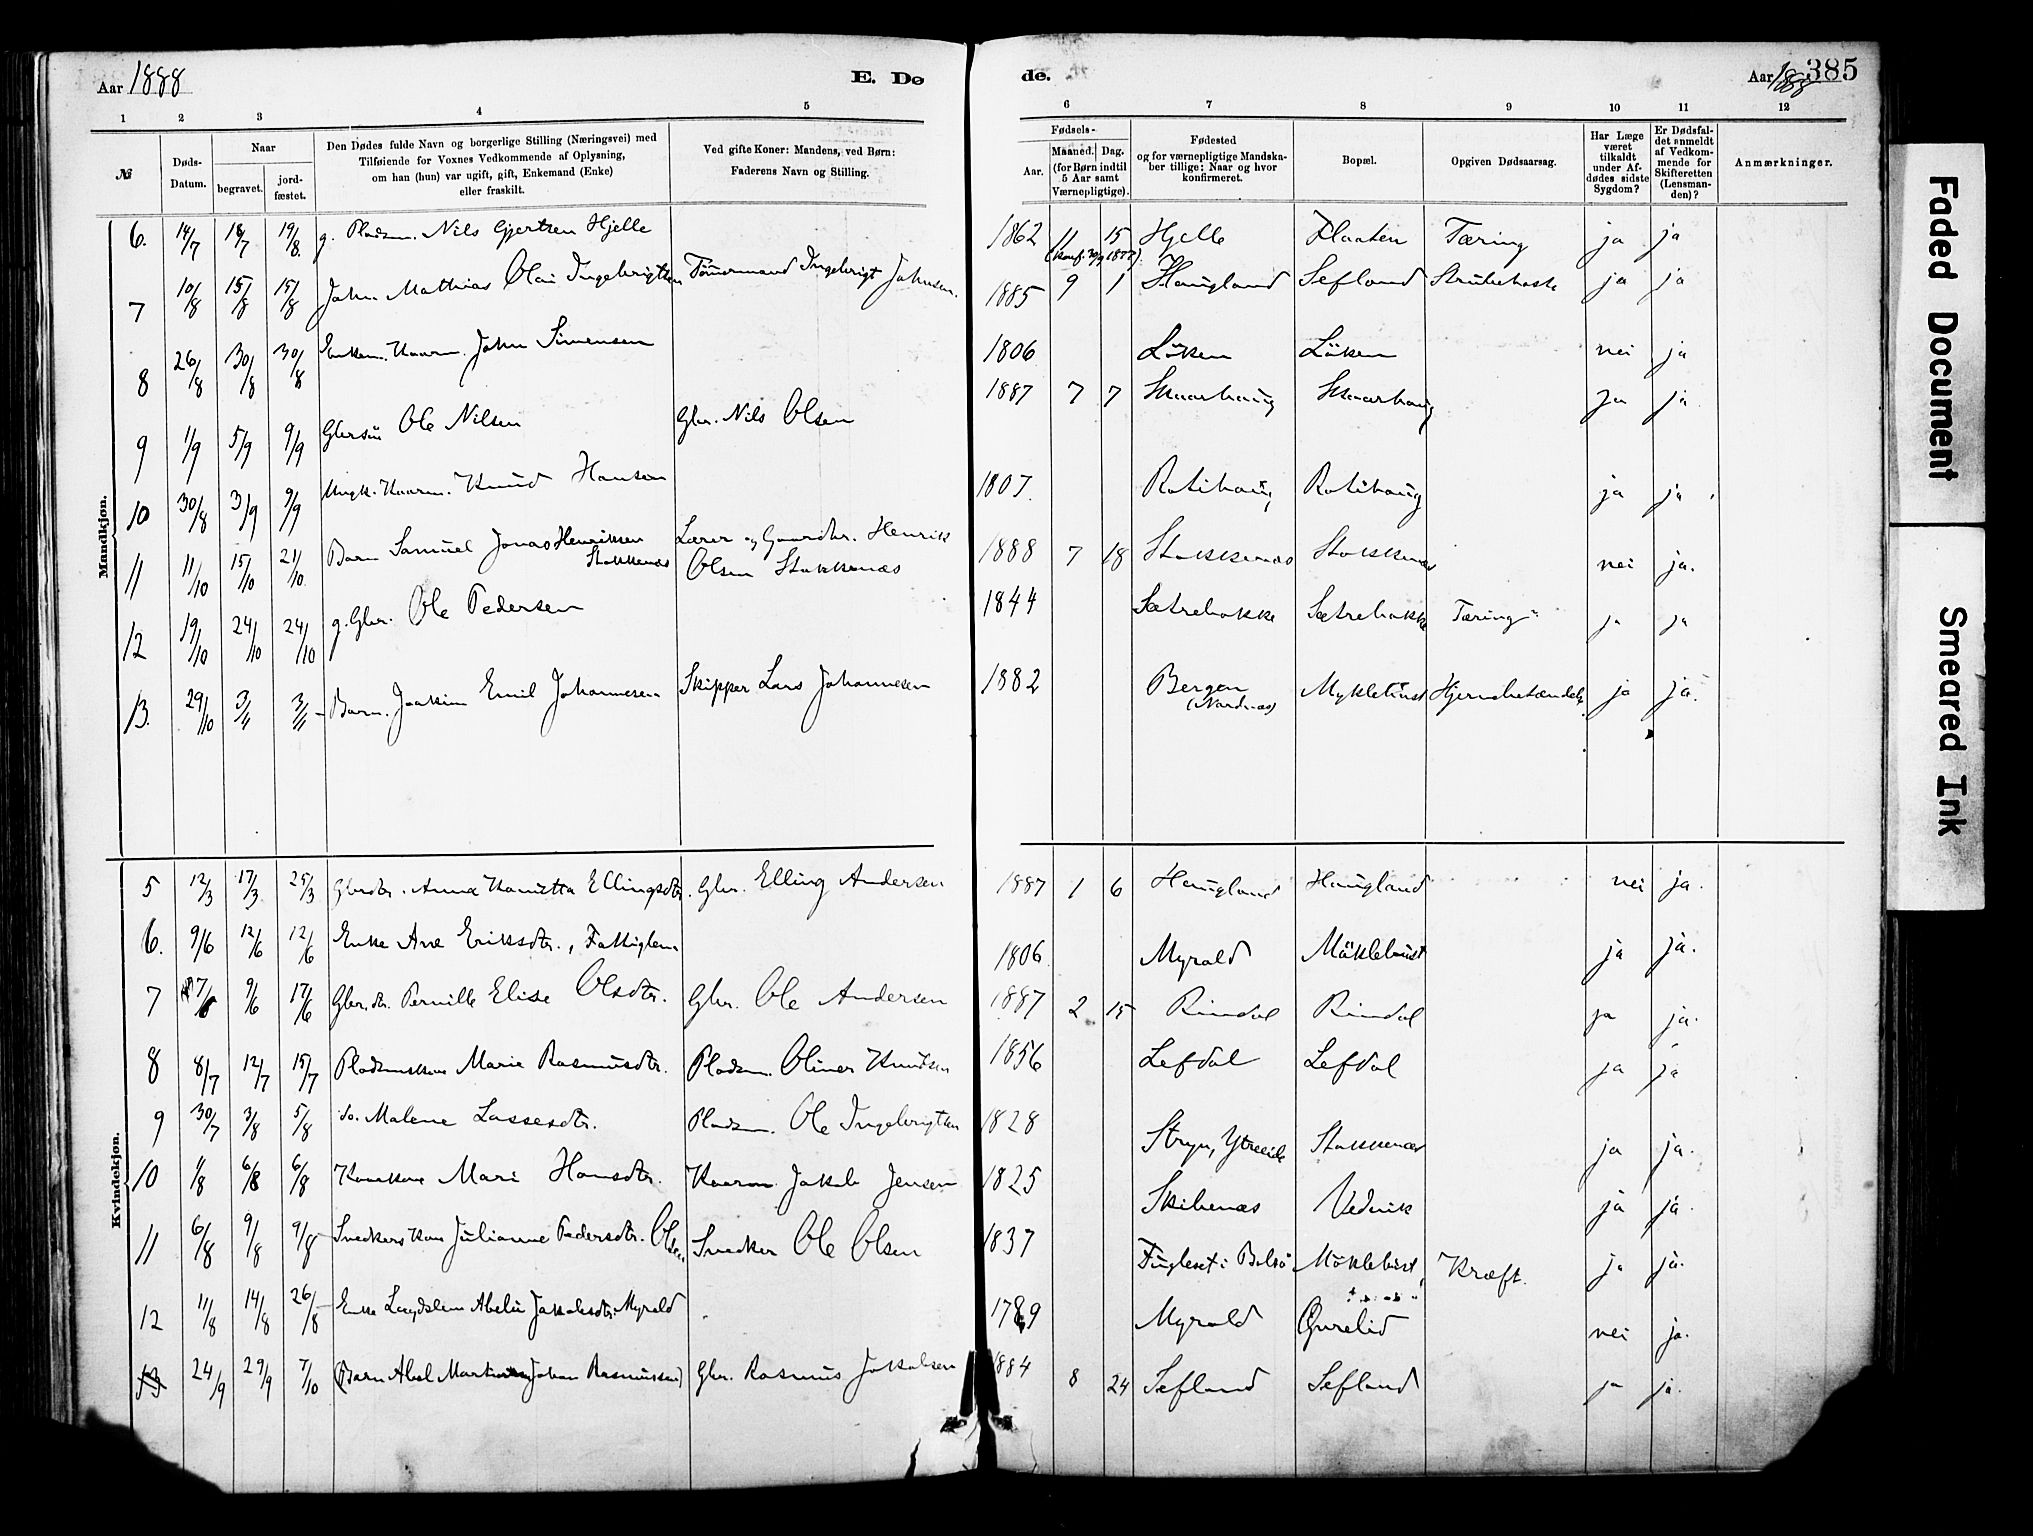 Aar 1888
E. Dø
de.
Aar 1888
385
1 2 3 4 5 6 7 8 9 10 11 12
№
Døds-Datum.
Naar
begravet.
jord-fæstet.
Den Dødes fulde Navn og borgerlige Stilling (Næringsvei) med
Tilføiende for Voxnes Vedkommende af Oplysning,
om han (hun) var ugift, gift, Enkemand (Enke)
eller fraskilt.
Ved gifte Koner: Mandens, ved Børn:
Faderens Navn og Stilling.
Fødsels-
Aar.
Maaned. Dag.
(for Børn indtil
5 Aar samt
Værnepligtige).
Fødested
og for værnepligtige Mandska-
ber tillige: Naar og hvor
konfirmeret.
Bopæl.
Opgiven Dødsaarsag.
Har Læge
været
tilkaldt
under Af-
dødes sidste
Sygdom?
Er Dødsfal-
det anmeldt
af Vedkom-
mende for
Skifteretten
(Lensman-
den)?
Anmærkninger.
Mandkjøn.
6. 14/7 18/7 19/8. g. Pladsm. Nils Gjertsen Hjelle 1862 11 15 Hjelle Flaaten Tæring ja ja
7 10/8 15/8 15/8 John Mathias Olai Ingebrigtsen Tömmermand Ingebrigt Johnsen. 1885 9 1 Haugland Sefland Strubehoste ja ja
8 26/8 30/8 30/8 Enkem. Kaarm. John Simensen 1806 Löken Löken nei ja
9 1/9 5/9 9/9 Gbrsön Ole Nilsen Gbr. Nils Olsen 1887 7 7 Skaarhaug Skaarhaug ja ja
10 30/8 3/9 9/9 Ungk. Kaarm. Knud Hansen 1807. Rotihaug Rotihaug ja ja
11 11/10 15/10 21/10. Barn Samuel Jonas Henriksen Stokkenæs Lærer og Gaardbr. Henrik
Olsen Stokkenæs 1888 7 18 Stokkenæs Stokkenæs nei ja.
12 19/10 24/10 24/10 g. Gbr. Ole Pedersen 1844 Sætrebakke Sætrebakke Tæring ja ja
13. 29/10 3/11 3/11 Barn. Joakim Emil Johannesen Skipper Lars Johannesen 1882 Bergen
(Nordnæs) Myklebust Hjernebetændelse ja ja.
Kvindekjøn.
5 12/3 17/3 25/3 Gbrdtr. Anna Ellingsdtr. Gbr. Elling Andersen 1887 1 6 Haugland Haugland nei ja.
6. 9/6 12/6 12/6 Enke Ane Eriksdtr., Fattiglem 1806 Myrold Möklebust ja ja.
7 7/6 9/6 17/6 Gbr.dtr. Pernille Elise Olsdtr. Gbr. Ole Andersen 1887 2 15 Rimdal Rimdal ja ja.
8 8/7 12/7 15/7 Pladsmskone Marie Rasmusdtr. Pladsm. Oliver Knudsen 1856 Lefdal Lefdal ja ja
9 30/7 3/8 5/8 do. Malene Lassesdtr. Pladsm. Ole Ingebrigtsen 1828 Stryn, Ytreeide Stokkenæs ja ja.
10 1/8 6/8 6/8 Konekone Mari Hansdtr. Kaarm. Jakob Jensen 1825 Skibenæs Vedvik ja ja.
11 6/8 9/8 9/8 Snedkerskone Julianne Pedersdtr. Olsen Snedker Ole Olsen 1837 Fugleset i Bolsö Möklebust Kræft. ja ja.
12 11/8 14/8 26/8 Enke Lægdslem Jakobsdtr. Myrold 1789 Myrold nei ja.
13 24/9 29/9 7/10 (Barn Abel Martin Johan Rasmussen) Gbr. Rasmus Jakobsen 1884 8 24 Sefland Sefland ja ja.
Faded Document
Smeared Ink